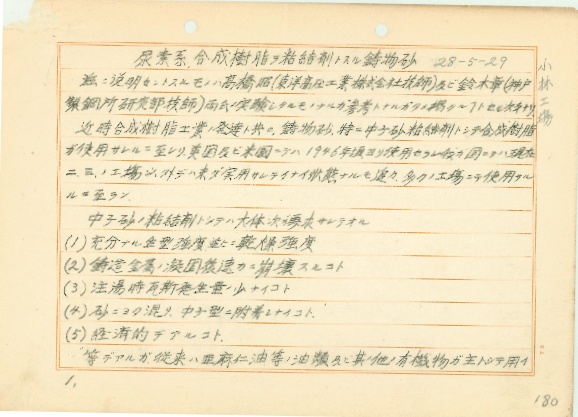 尿素系合成樹脂ヲ粘結剤トスル鋳物砂 28-5-29
小林工場
茲ニ説明セントスルモノハ高橋 (東洋高圧工業株式会社技師)及ビ鈴木章(神戸
製鋼所研究部技師)両氏ノ実験シタルモノナルガ参考トナル
近時合成樹脂工業ノ発達ト共ニ鋳物砂、特ニ中子砂粘結剤トシテ合成樹脂
ガ使用サレルニ至レリ、英国及ビ米国ニテハ1946年頃ヨリ使用セラレ我ガ国ニテハ現在
ニ、三ノ工場以外デハ未ダ実用サレテイナイ状態ナルモ遠カラズ多クノ工場ニテ使用サル
ルニ至ラン.
中子砂ノ粘結剤トシテハ大体次ノ要求サレテオル
(1) 充分ナル生型強度並ニ乾燥強度
(2) 鋳造金属ノ凝固後速カニ崩壊スルコト
(3) 注湯時瓦斯発生量ノ少ナイコト
(4) 砂ニヨク混リ、中子型ニ附着シナイコト.
(5) 経済的デアルコト.
等デアルガ従来ハ亜麻仁油等ノ油類及ビ其ノ他ノ有機物ガ主トシテ用イ
1.
180